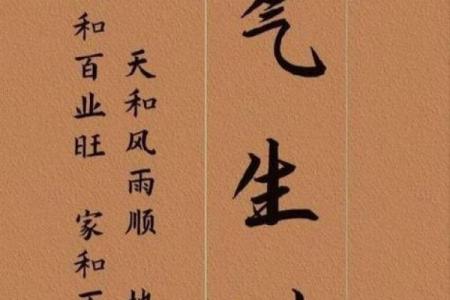 气生
天和风雨顺
和百业旺 家和